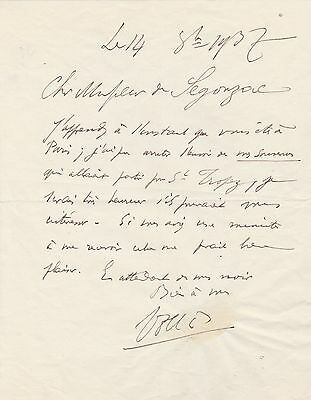 Le 14 8bre 1937
Cher Monsieur de Segonzac
J'apprends à l'instant que vous êtes à
Paris; j'ai pu arrêter l'envoi de mes Souvenirs
qui allait partir pour St Tropez, je
serais très heureux s'ils pouvaient vous
intéresser. Si vous avez une minute
à me cela me ferait bien
plaisir. En attendant de vous voir
Bien à vous